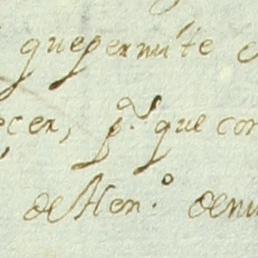 que permite
ecer, p.s que con
de Hen.o de mi